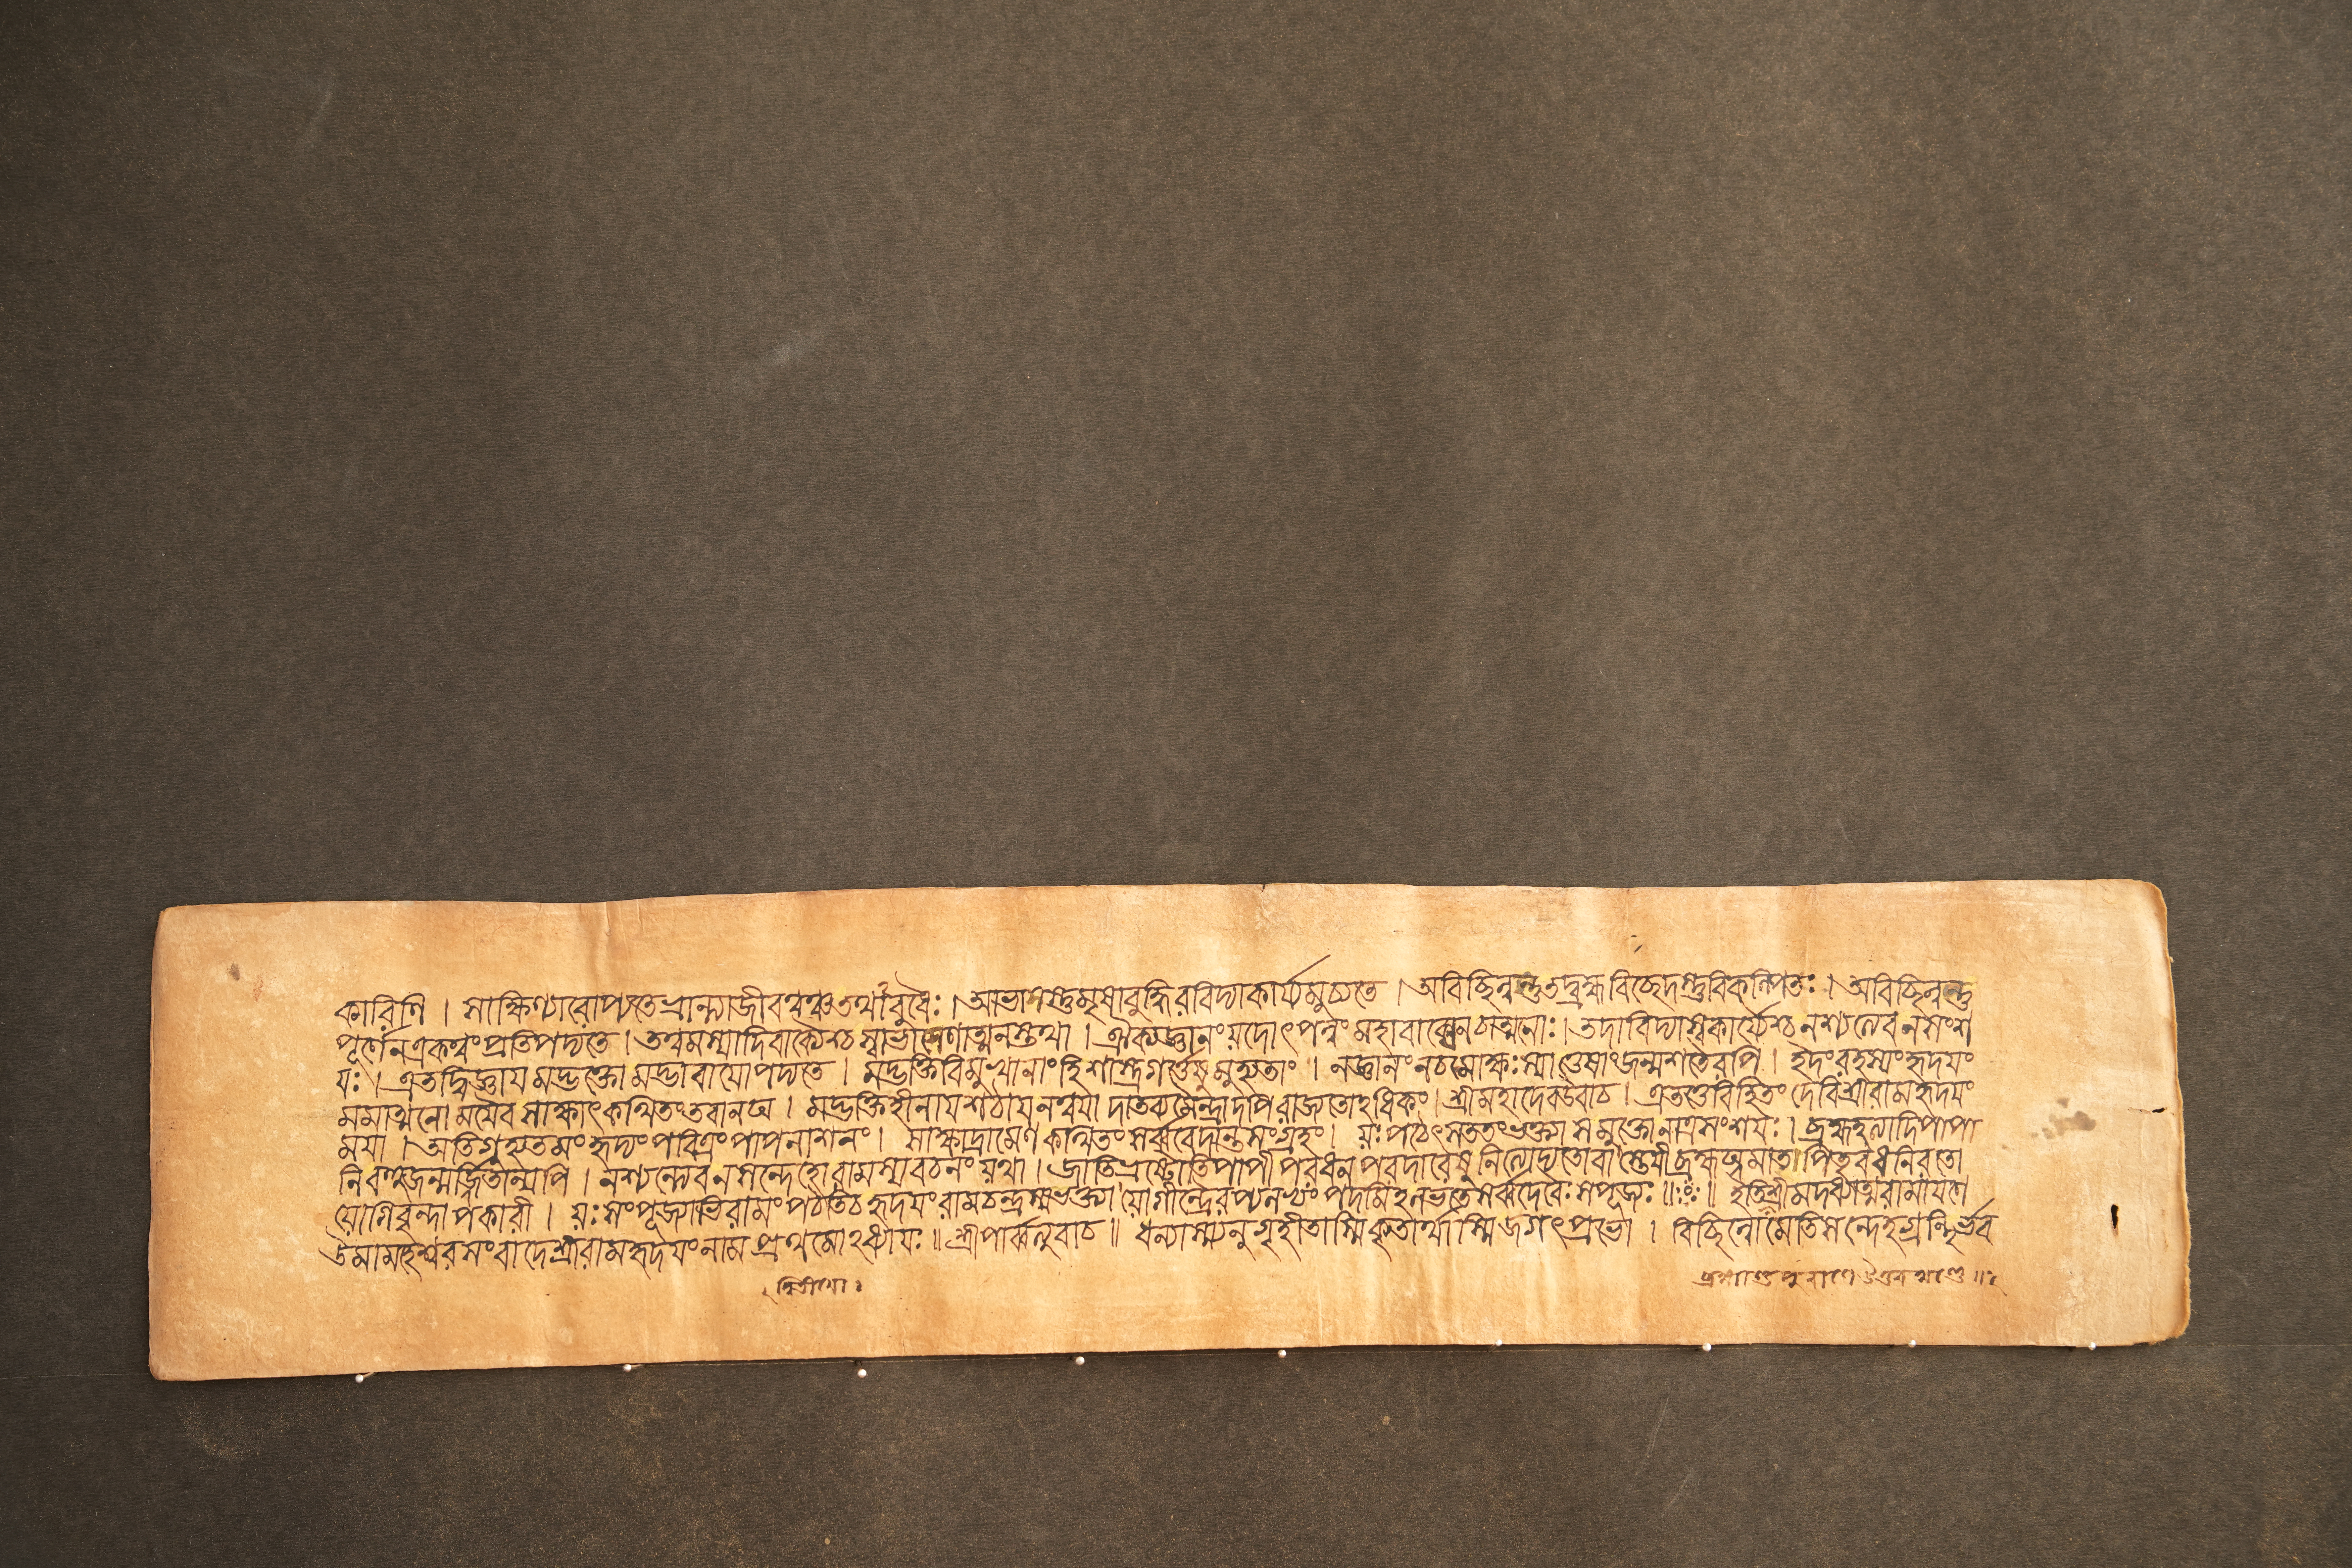 কারিণি । সাক্ষিণ্যারোপ্যতে ভ্রান্ত্যা জীবত্বঞ্চ তথা বুধৈঃ । আভাসস্তু মৃষাবুদ্ধিরবিদ্যাকার্য্যমুচ্যতে । অবিচ্ছিন্নন্তু তদ্ব্রহ্ম বিচ্ছেদস্তু বিকল্পিতঃ । অবিচ্ছিন্নস্তু
পূর্ণেন একত্বং প্রতিপদ্যতে । তত্ত্বমস্যাদিবাক্যৈশ্চ সাভাসেণাত্মনস্তথা । ঐক্যজ্ঞানং যদোৎপন্নং মহাবাক্যেন চাত্মনোঃ । তদাবিদ্যা স্বকার্য্যৈশ্চ নশ্যত্যেব ন সংশ
যঃ । এতদ্বিজ্ঞায় মদ্ভক্তো মদ্ভাবায়োপদ্যতে । মদ্ভক্তিবিমুখানাং হি শাস্ত্রগর্ত্তেষু মুহ্যতাং । ন জ্ঞানং ন চ মোক্ষঃ স্যাত্তেষাং জন্মশতৈরপি । ইদং রহস্যং হৃদয়ং
মমাত্মনো ময়ৈব সাক্ষাৎ কথিতং তবানঘ । মদ্ভক্তিহীনায় শঠায় ন ত্বয়া দাতব্যমৈন্দ্রাদপি রাজ্যতোঽধিকং । শ্রীমহাদেব উবাচ । এতত্তেবিহিতং দেবি শ্রীরামহৃদয়ং
ময়া । অতিগুহ্যতমং হৃদ্যং পবিত্রং পাপনাশনং । সাক্ষাদ্রামেণ কথিতং সর্ব্ববেদান্তসংগ্রহং । যঃ পঠেৎ সততং ভক্ত্যা স মুক্তো নাত্র সংশয়ঃ । ব্রহ্মহত্যাদিপাপা
নি বহুজন্মার্জ্জিতান্যপি । নশ্যন্ত্যেব ন সন্দেহো রামস্য বচনং যথা । জাতিভ্রষ্টোতিপাপী পরধনপরদারেষু নিত্যোদ্যতো বা স্তেয়ী ব্রহ্মঘ্নমাতাপিতৃবধনিরতো
যোগিবৃন্দাপকারী । যঃ সংপূজ্যাভিরামং পঠতি চ হৃদয়ং রামচন্দ্রস্য ভক্ত্যা যোগীন্দ্রৈরপ্যলভ্যং পদমিহ লভতে সর্ব্বদেবৈঃ স পূজ্যঃ ॥ঃ॥ ইতি শ্রীমদধ্যাত্মরামায়ণে
উমামহেশ্বরসংবাদে শ্রীরামহৃদয়ং নাম প্রথমোঽধ্যায়ঃ ॥ শ্রীপার্ব্বত্যুবাচ ॥ ধন্যাস্ম্যনুগৃহীতাস্মি কৃতার্থাস্মি জগৎপ্রভো । বিচ্ছিন্নোমেতিসন্দেহগ্রন্থির্ভব
দ্বিতীয়ো ঃ
ব্রহ্মাণ্ডপুরাণে উত্তরখণ্ডে ॥